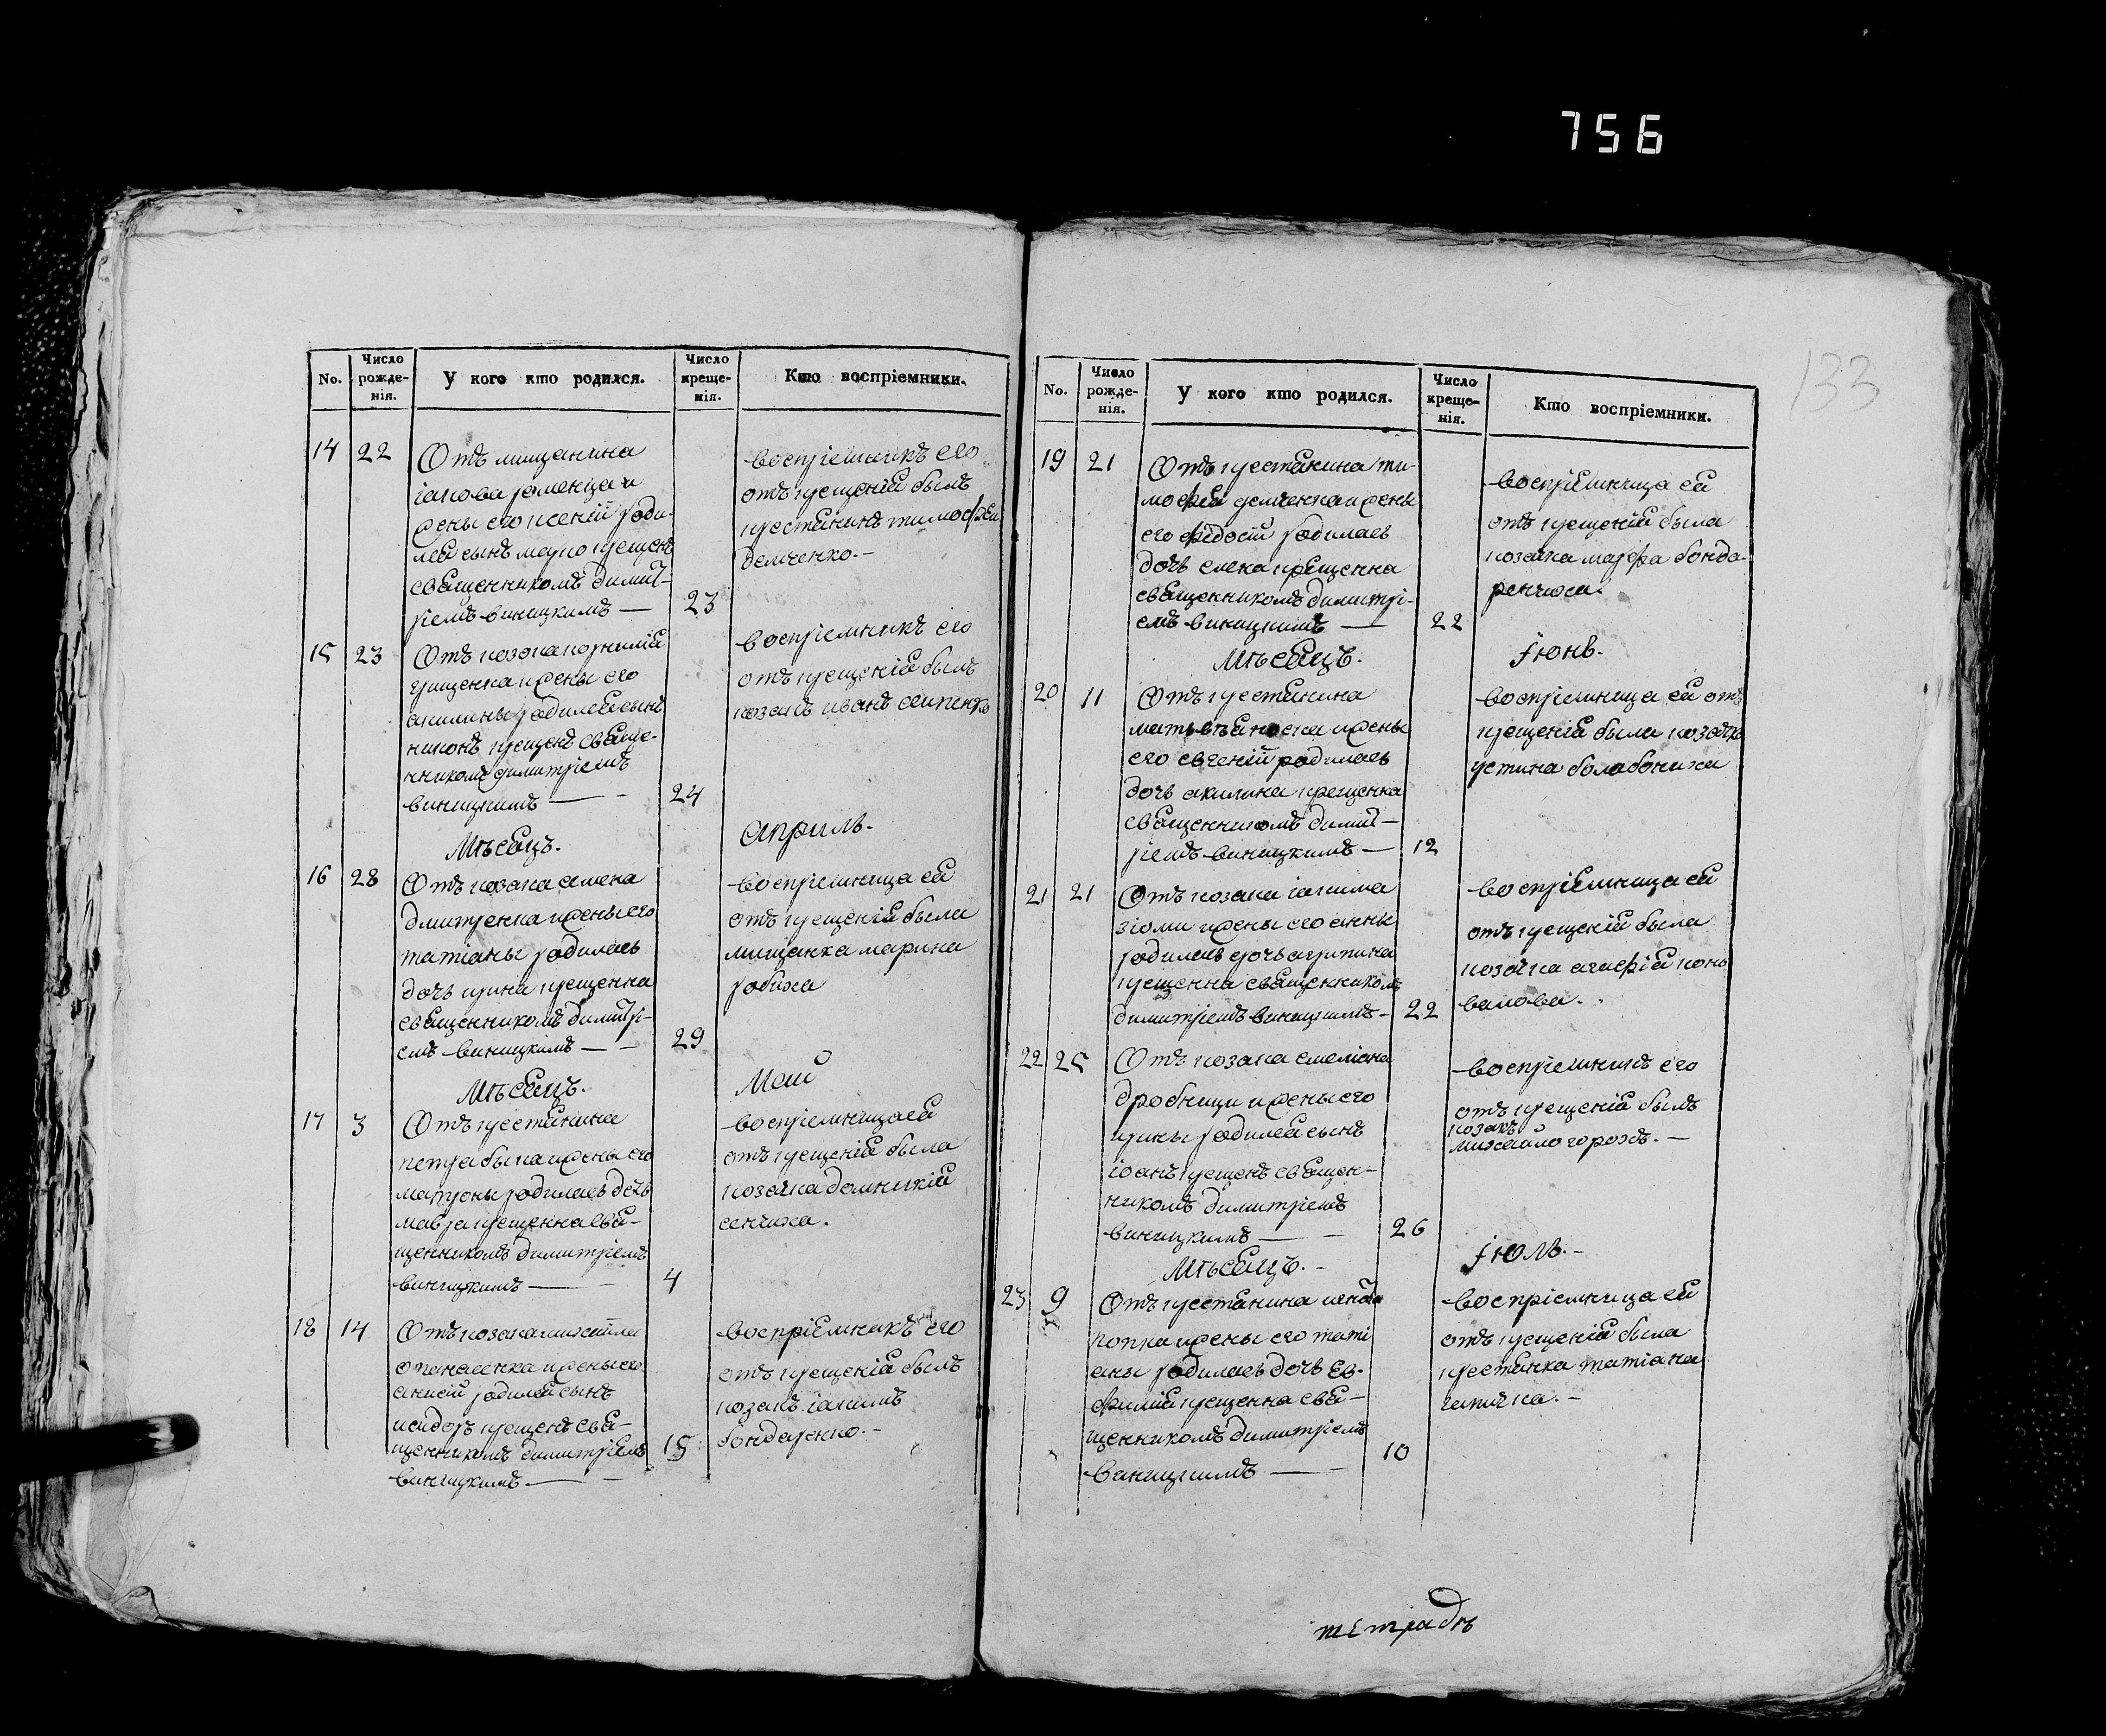 756
133
No.
Число рожде-нія.
У кого кто родился.
Число креще-нія.
Кто воспріемники.
14 22
Отъ мищанина
іакова
жены его ксеніи роди-
лся сынъ крещенъ
священникомъ димит-
ріемъ виницкимъ — 23
воспріемникъ его
отъ крещенія былъ
крестянинъ тимофеи
демченко.-
15 23
Отъ козака корнилія
грищенка и жены его
акилины родился сынъ
никонъ крещенъ свяще-
нникомъ димитріемъ
виницкимъ — 24
воспріемникъ его
отъ крещенія былъ
козакъ иванъ
Мѣсяцъ. априль.
16 28
Отъ козака семена
дмитренка и жены его
татіаны родилась
дочь ирина крещенна
священникомъ димитрі-
емъ виницкимъ — 29
воспріемница ея
отъ крещенія была
мищанка марина
Мѣсяцъ. Маій
17 3
Отъ крестянина
петра быка и жены его
матроны родилась дочь
мавра крещенна свя-
щенникомъ димитріемъ
виницкимъ — 4
воспріемница ея
отъ крещенія была
козачка домникія
сенчиха.
18 14
Отъ козака михаила
опанасенка и жены его
анисіи родился сынъ
исидоръ крещенъ свя-
щенникомъ димитріемъ
виницкимъ — 15
воспріемникъ его
отъ крещенія былъ
козакъ іакимъ
бондаренко.-
No.
Число рожде-нія.
У кого кто родился.
Число креще-нія.
Кто воспріемники.
19 21
Отъ крестянина ти-
мофея демченка и жены
его фѣдосіи родилась
дочь елена крещенна
священникомъ димитрі-
емъ виницкимъ — 22
воспріемница ея
отъ крещенія была
козачка марфа бонда-
ренчиха.
Мѣсяцъ. Іюнь.
20 11
Отъ крестянина
матвѣя носка и жены
его евгеніи родилась
дочь акилина крещенна
священникомъ димит-
ріемъ виницкимъ — 12
воспріемница ея отъ
крещенія была козачка
устина болабониха
21 21
Отъ козака іакима
зіоми и жены его анны
родилась дочь агрипина
крещенна священникомъ
димитріемъ виницкимъ - 22
воспріемница ея
отъ крещенія была
козачка агафія коно
валова.
22 25
Отъ козака емеліана
дробници и жены его
ирины родился сынъ
іоанъ крещенъ священ-
никомъ димитріемъ
виницкимъ — 26
воспріемникъ его
отъ крещенія былъ
козакъ
михаило гороxъ.-
Мѣсяцъ.- Іюль.-
23 9
Отъ крестянина
попка и жены его таті
аны родилась дочь ев-
фимія крещенна свя-
щенникомъ димитріемъ
виницкимъ — 10
воспріемница ея
отъ крещенія была
крестянка татіана
тетрадь